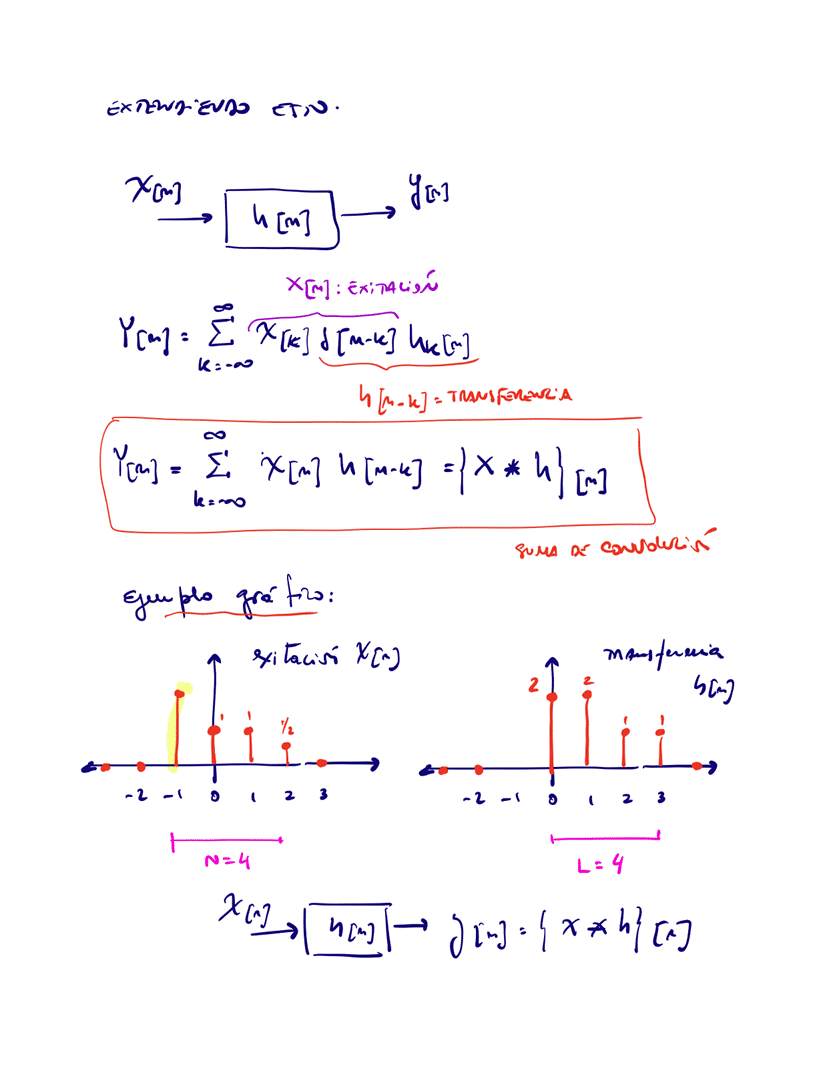 EXTENDIENDO ESTO.
x[n]
h[n]
y[n]
x[n]: EXITACIÓN
Y[n] = ∑ x[k] δ[n-k] hk[n]
∞
k=-∞
h[n-k] = TRANSFERENCIA
Y[n] = ∑ x[n] h[n-k] = {x * h}[n]
∞
k=-∞
SUMA DE CONVOLUCIÓN
Ejemplo gráfico:
exitación x[n]
1 1 1/2
-2 -1 0 1 2 3
N=4
transferencia
h[n]
2 2 1 1
-2 -1 0 1 2 3
L=4
x[n]
h[n]
y[n] = {x * h}[n]